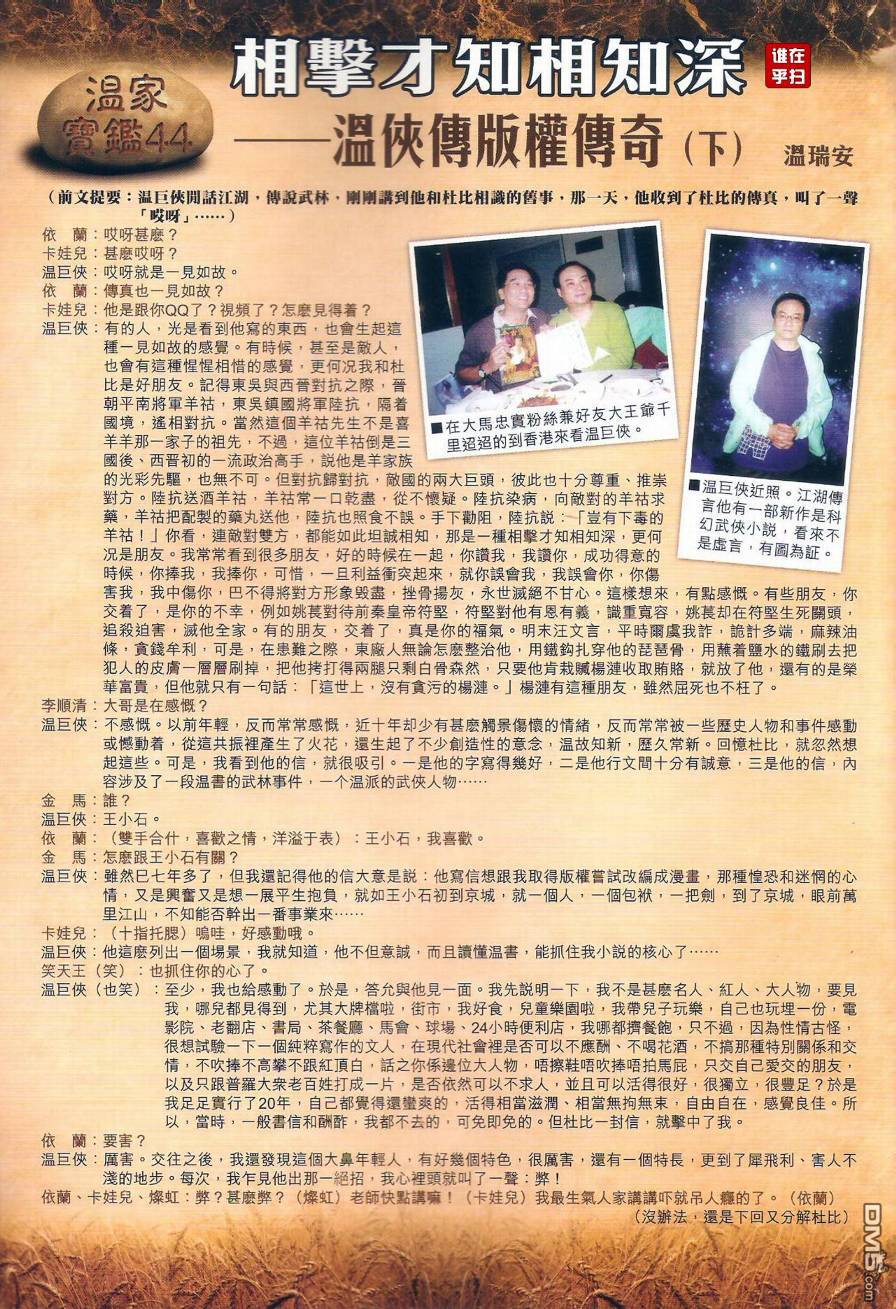 相擊才知相知深
誰在乎扫
温家
寶鑑44
——温俠傳版權傳奇（下） 溫瑞安
（前文提要：温巨俠閒話江湖，傳說武林，剛剛講到他和杜比相識的舊事，那一天，他收到了杜比的傳真，叫了一聲
「哎呀」……）
依　蘭：哎呀甚麽？
卡娃兒：甚麽哎呀？
温巨俠：哎呀就是一見如故。
依　蘭：傳真也一見如故？
卡娃兒：他是跟你QQ了？視頻了？怎麽見得着？
温巨俠：有的人，光是看到他寫的東西，也會生起這
種一見如故的感覺。有時候，甚至是敵人，
也會有這種惺惺相惜的感覺，更何况我和杜
比是好朋友。記得東吳與西晉對抗之際，晉
朝平南將軍羊祜，東吳鎮國將軍陸抗，隔着
國境，遙相對抗。當然這個羊祜先生不是喜
羊羊那一家子的祖先，不過，這位羊祜倒是三
國後、西晉初的一流政治高手，説他是羊家族
的光彩先驅，也無不可。但對抗歸對抗，敵國的兩大巨頭，彼此也十分尊重、推崇
對方。陸抗送酒羊祜，羊祜常一口乾盡，從不懷疑。陸抗染病，向敵對的羊祜求
藥，羊祜把配製的藥丸送他，陸抗也照食不誤。手下勸阻，陸抗説：「豈有下毒的
羊祜！」你看，連敵對雙方，都能如此坦誠相知，那是一種相擊才知相知深，更何
况是朋友。我常常看到很多朋友，好的時候在一起，你讚我，我讚你，成功得意的
時候，你捧我，我捧你，可惜，一旦利益衝突起來，就你誤會我，我誤會你，你傷
害我，我中傷你，巴不得將對方形象毀盡，挫骨揚灰，永世滅絕不甘心。這樣想來，有點感慨。有些朋友，你
交着了，是你的不幸，例如姚萇對待前秦皇帝符堅，符堅對他有恩有義，識重寬容，姚萇却在符堅生死關頭，
追殺迫害，滅他全家。有的朋友，交着了，真是你的福氣。明末汪文言，平時爾虞我詐，詭計多端，麻辣油
條，貪錢牟利，可是，在患難之際，東廠人無論怎麽整治他，用鐵鈎扎穿他的琵琶骨，用蘸着鹽水的鐵刷去把
犯人的皮膚一層層刷掉，把他拷打得兩腿只剩白骨森然，只要他肯栽贓楊漣收取賄賂，就放了他，還有的是榮
華富貴，但他就只有一句話：「這世上，沒有貪污的楊漣。」楊漣有這種朋友，雖然屈死也不枉了。
■在大馬忠實粉絲兼好友大王爺千
里迢迢的到香港來看温巨俠。
■温巨俠近照。江湖傳
言他有一部新作是科
幻武俠小説，看來不
是虛言，有圖為証。
李順清：大哥是在感慨？
温巨俠：不感慨。以前年輕，反而常常感慨，近十年却少有甚麽觸景傷懷的情緒，反而常常被一些歷史人物和事件感動
或憾動着，從這共振裡產生了火花，還生起了不少創造性的意念，温故知新，歷久常新。回憶杜比，就忽然想
起這些。可是，我看到他的信，就很吸引。一是他的字寫得幾好，二是他行文間十分有誠意，三是他的信，內
容涉及了一段温書的武林事件，一个温派的武俠人物……
金　馬：誰？
温巨俠：王小石。
依　蘭：（雙手合什，喜歡之情，洋溢于表）：王小石，我喜歡。
金　馬：怎麽跟王小石有關？
温巨俠：雖然巳七年多了，但我還記得他的信大意是説：他寫信想跟我取得版權嘗試改編成漫畫，那種惶恐和迷惘的心
情，又是興奮又是想一展平生抱負，就如王小石初到京城，就一個人，一個包袱，一把劍，到了京城，眼前萬
里江山，不知能否幹出一番事業來……
卡娃兒：（十指托腮）嗚哇，好感動哦。
温巨俠：他這麽列出一個場景，我就知道，他不但意誠，而且讀懂温書，能抓住我小說的核心了……
笑天王（笑）：也抓住你的心了。
温巨俠（也笑）：至少，我也給感動了。於是，答允與他見一面。我先説明一下，我不是甚麽名人、紅人、大人物，要見
我，哪兒都見得到，尤其大牌檔啦，街市，我好食，兒童樂園啦，我帶兒子玩樂，自己也玩埋一份，電
影院、老翻店、書局、茶餐廳、馬會、球場、24小時便利店，我哪都擠餐飽，只不過，因為性情古怪，
很想試驗一下一個純粹寫作的文人，在現代社會裡是否可以不應酬、不喝花酒，不搞那種特別關係和交
情，不吹捧不高攀不跟紅頂白，話之你係邊位大人物，唔擦鞋唔吹捧唔拍馬屁，只交自己愛交的朋友，
以及只跟普羅大衆老百姓打成一片，是否依然可以不求人，並且可以活得很好，很獨立，很豐足？於是
我足足實行了20年，自己都覺得還蠻爽的，活得相當滋潤、相當無拘無束，自由自在，感覺良佳。所
以，當時，一般書信和酬酢，我都不去的，可免即免的。但杜比一封信，就擊中了我。
依　蘭：要害？
温巨俠：厲害。交往之後，我還發現這個大鼻年輕人，有好幾個特色，很厲害，還有一個特長，更到了犀飛利、害人不
淺的地步。每次，我乍見他出那一絕招，我心裡頭就叫了一聲：弊！
依蘭、卡娃兒、燦虹：弊？甚麽弊？（燦虹）老師快點講嘛！（卡娃兒）我最生氣人家講講吓就吊人癮的了。（依蘭）
（沒辦法，還是下回又分解杜比）
DM5.com